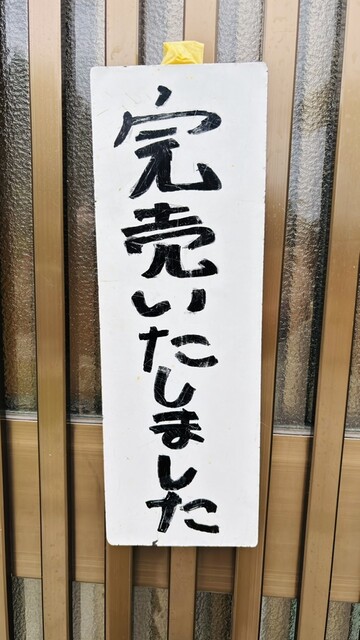 完売いたしました